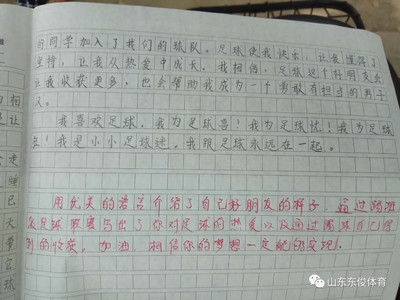 同同学加入了我们的球队。足球使我快乐，让我懂得了
坚持，让我从热爱中成长。我相信，足球这个好朋友会
让我收获更多，也会帮助我成为一个勇敢有担当的男子
汉。
我喜欢足球，我为足球喜！我为足球忧！我为足球
！我是小小足球迷，我跟足球永远在一起。
用优美的语言介绍了自己好朋友的样子，通过踢班
级足球联赛写出了你对足球的热爱以及通过踢球自己得
到的收获。加油，相信你的梦想一定能够实现。
山东东俊体育